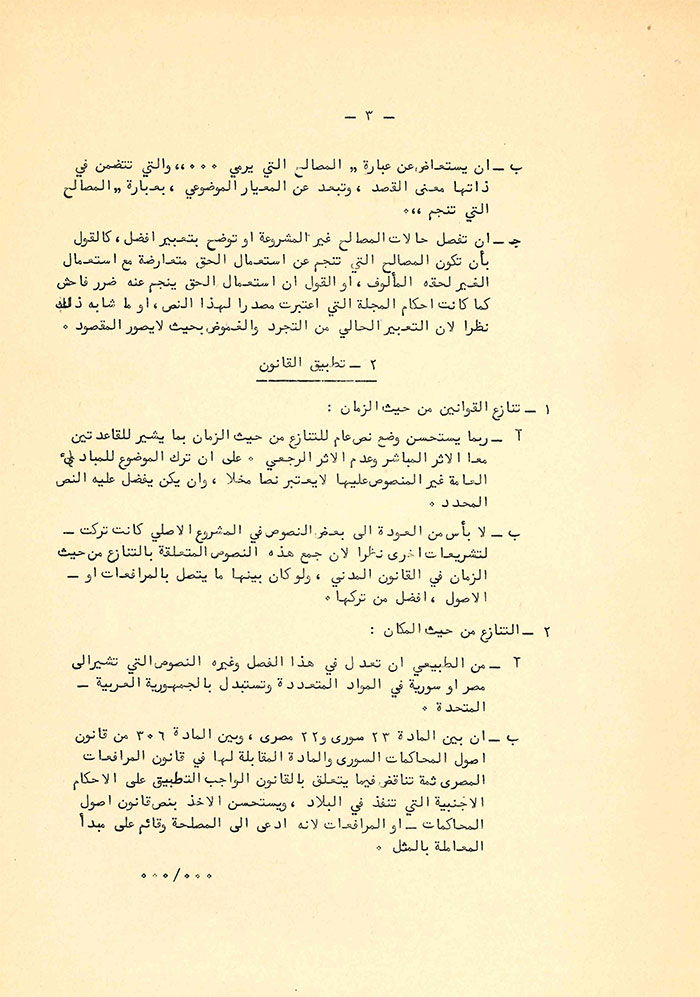 — ٣ —
ب — ان يستعاض عن عبارة ,, المصالح التي يرمي ٠٠٠،، والتي تتضمن في
ذاتها معنى القصد ، وتبعد عن المعيار الموضوعي ، بعبارة ,, المصالح
التي تنجم ،،٠
جـ — ان تفصل حالات المصالح غير المشروعة او توضح بتعبير افضل ، كالقول
بأن تكون المصالح التي تنجم عن استعمال الحق متعارضة مع استعمال
الغير لحقه المألوف ، او القول ان استعمال الحق ينجم عنه ضرر فاحش
كما كانت احكام المجلة التي اعتبرت مصدرا لهذا النص ، او ما شابه ذلك
نظرا لان التعبير الحالي من التجرد والغموض بحيث لايصور المقصود ٠
٢ — تطبيق القانون
١ — تنازع القوانين من حيث الزمان :
آ — ربما يستحسن وضع نص عام للتنازع من حيث الزمان بما يشير للقاعدتين
معا الاثر المباشر وعدم الاثر الرجعي ٠ على ان ترك الموضوع للمبادئ
العامة غير المنصوص عليها لايعتبر نصا مخلا ، وان يكن يفضل عليه النص
المحدد ٠
ب — لا بأس من العودة الى بعض النصوص في المشروع الاصلي كانت تركت —
لتشريعات اخرى نظرا لان جمع هذه النصوص المتعلقة بالتنازع من حيث
الزمان في القانون المدني ، ولو كان بينها ما يتصل بالمرافعات او —
الاصول ، افضل من تركها ٠
٢ — التنازع من حيث المكان :
آ — من الطبيعي ان تعدل في هذا الفصل وغيره النصوص التي تشير الى
مصر او سورية في المواد المتعددة وتستبدل بالجمهورية العربية —
المتحدة ٠
ب — ان بين المادة ٢٣ سورى و٢٢ مصرى ، وبين المادة ٣٠٦ من قانون
اصول المحاكمات السورى والمادة المقابلة لها في قانون المرافعات
المصرى ثمة تناقض فيما يتعلق بالقانون الواجب التطبيق على الاحكام
الاجنبية التي تنفذ في البلاد ، ويستحسن الاخذ بنص قانون اصول
المحاكمات — او المرافعات لانه ادعى الى المصلحة وقائم على مبدأ
المعاملة بالمثل ٠
٠٠٠/٠٠٠